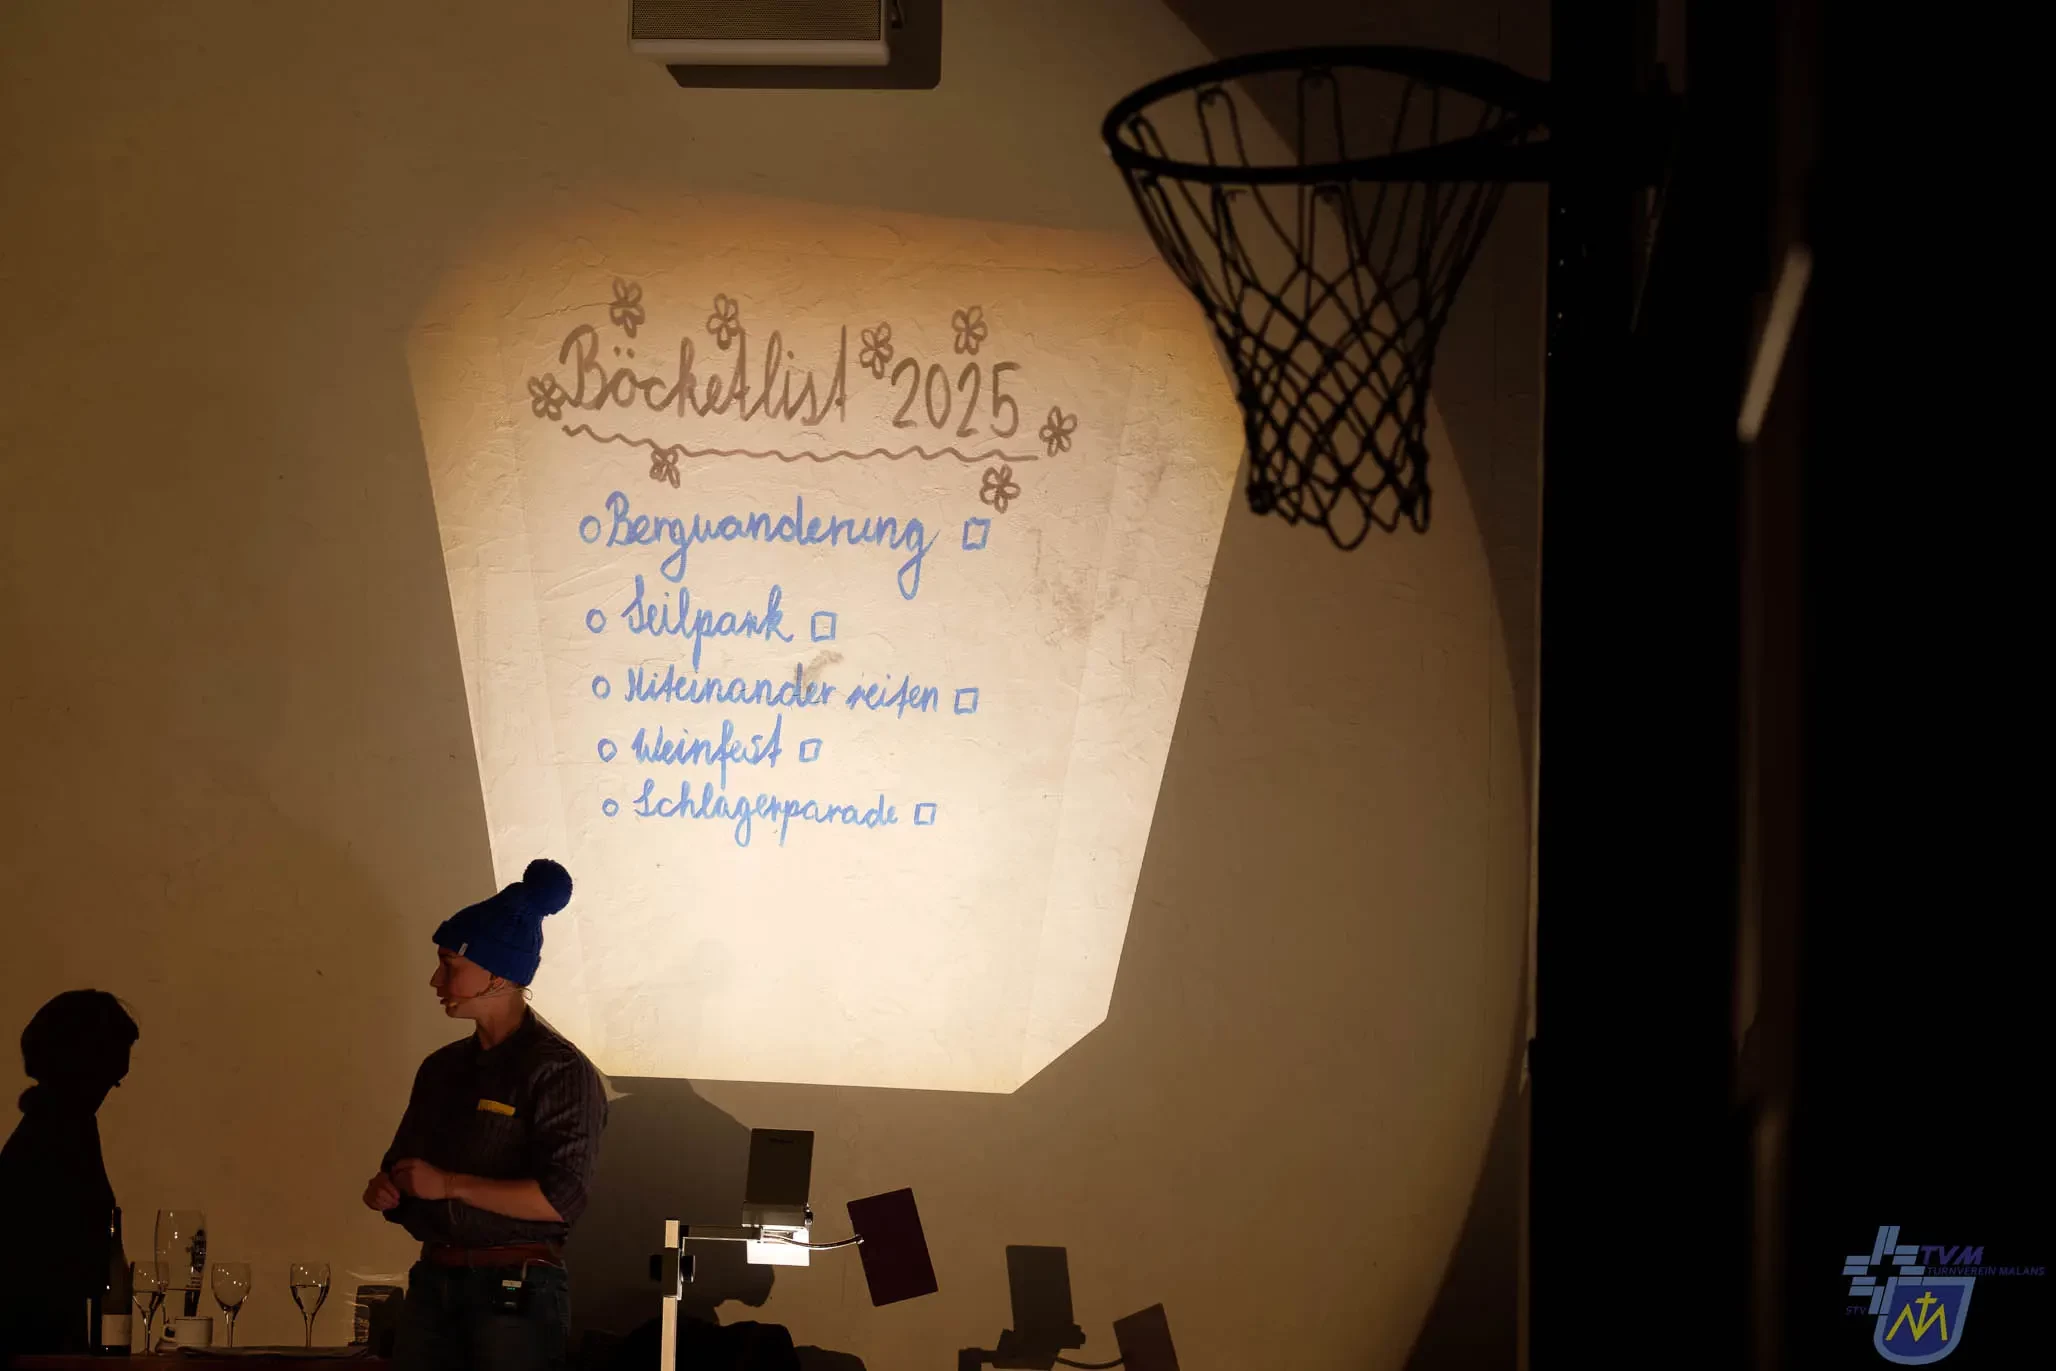 Böcketlist 2025
Bergwanderung
Seilpark
Miteinander reiten
Weinfest
Schlagerparade
TVM
TURNVEREIN MALANS
STV